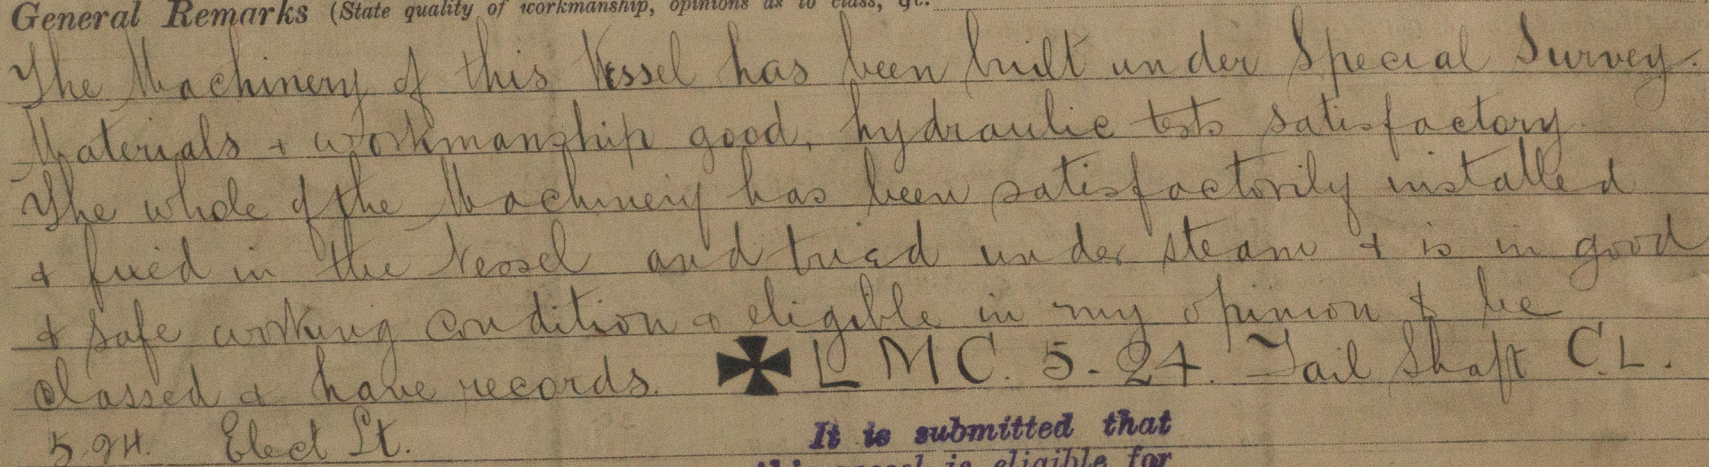 General Remarks (State quality of workmanship, opinions as to class, &c.
The Machinery of this Vessel has been built under Special Survey.
Materials + workmanship good, hydraulic tests satisfactory
The whole of the Machinery has been satisfactorily installed
+ fixed in the Vessel and tried under steam + is in good
+ safe working condition + eligible in my opinion to be
classed + have records. ✠ LMC. 5-24. Tail Shaft C.L.
5.24. Elect Lt.
It is submitted that
this vessel is eligible for